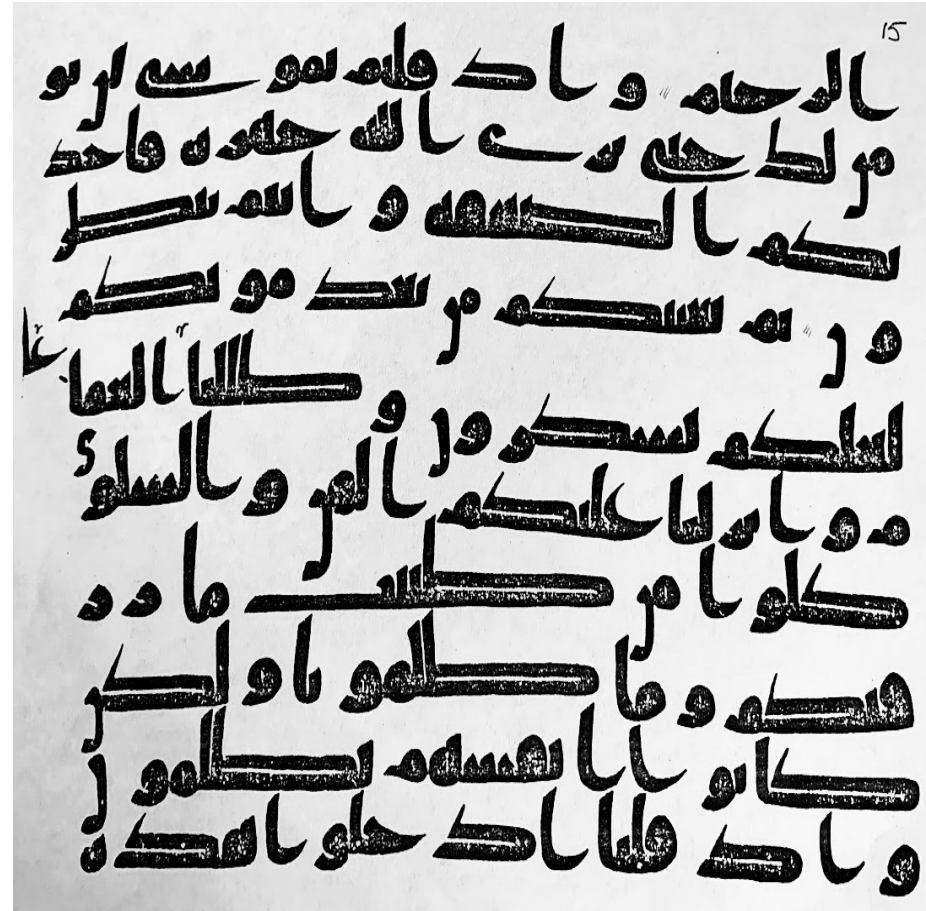 15
الرحيم و اذ قلتم يموسى لن نو
من لك حتى نرى الله جهرة فاخذ
تكم الصعقة و انتم تنظر
و ن ثم بعثنكم من بعد موتكم
لعلكم تشكرون و ظللنا الغما
م و انزلنا عليكم المن و السلوى
كلوا من طيبت ما رز
قنكم و ما ظلمونا و لكن
كانوا انفسهم يظلمون
و اذ قلنا ادخلوا هذه